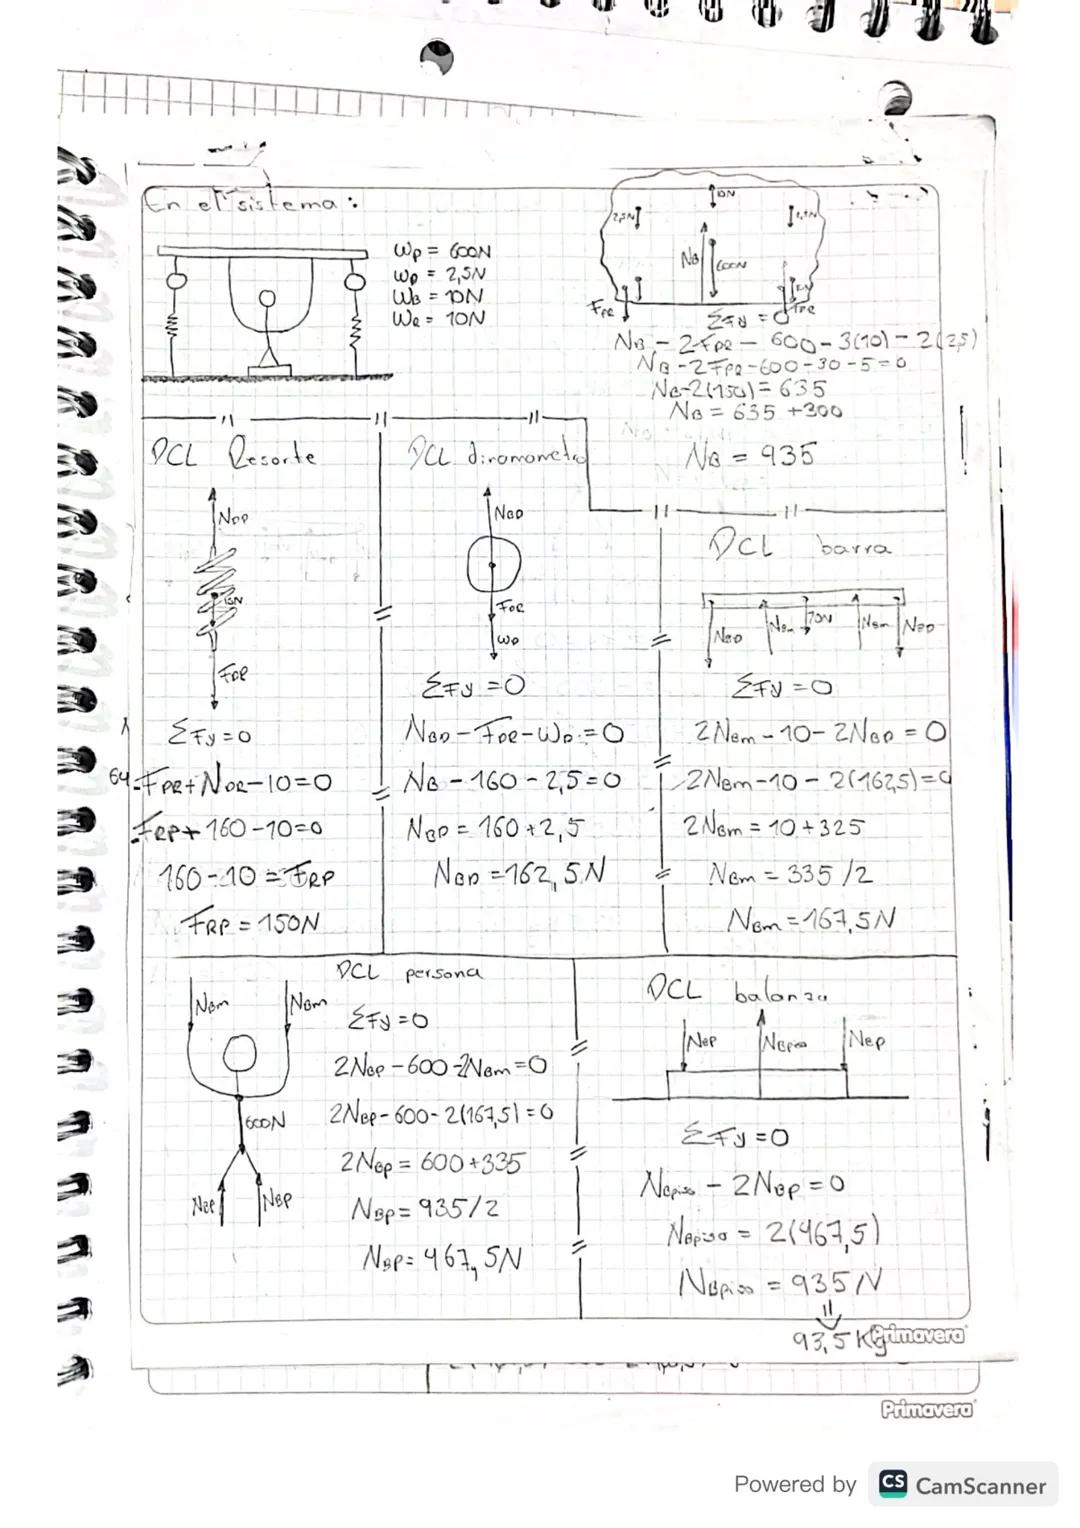 En el sistema:
Wp = 600N
WD = 2,5N
WB = 10N
WR = 10N
2,5N
10N
NB
600N
FPR
FPR
ΣFy = 0
NB - 2FPR - 600 - 3(10) - 2(2,5)
NB - 2FPR - 600 - 30 - 5 = 0
NB - 2(150) = 635
NB = 635 + 300
NB = 935
DCL Resorte
NDR
10N
FRP
ΣFy = 0
- FPR + NDR - 10 = 0
- FRP + 160 - 10 = 0
160 - 10 = FRP
FRP = 150N
DCL dinamometro
NBD
FDR
WD
ΣFy = 0
NBD - FDR - WD = 0
NB - 160 - 2,5 = 0
NBD = 160 + 2,5
NBD = 162,5N
DCL barra
NBD
NBm
10N
NBm
NBD
ΣFy = 0
2NBm - 10 - 2NBD = 0
2NBm - 10 - 2(162,5) = 0
2NBm = 10 + 325
NBm = 335/2
NBm = 167,5N
DCL persona
NBm
NBm
600N
NBP
NBP
ΣFy = 0
2NBP - 600 - 2NBm = 0
2NBP - 600 - 2(167,5) = 0
2NBP = 600 + 335
NBP = 935/2
NBP = 467,5N
DCL balanza
NBP
NBpiso
NBP
ΣFy = 0
NBpiso - 2NBP = 0
NBpiso = 2(467,5)
NBpiso = 935N
93,5 Kg
Primavera
Primavera
Powered by CS CamScanner